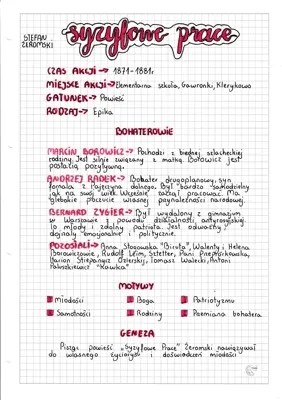 STEFAN
ŻEROMSKI
syzyfowe prace
CZAS AKCJI → 1871-1881r.
MIEJSCE AKCJI → Elementarna szkoła, Gawronki, Klerykowo
GATUNEK → Powieść
RODZAJ → Epika
BOHATEROWIE
MARCIN BOROWICZ → Pochodzi z biednej szlacheckiej
rodziny. Jest silnie związany z matką. Borowicz jest
postacią pozytywną.
ANDRZEJ RADEK → Bohater drugoplanowy, syn
fornala, z Pajęczyna dolnego. Był bardzo samodzielny
jak na swój wiek. Wcześnie zaczął pracować. Ma
głębokie poczucie własnej przynależności narodowej.
BERNARD ZYGIER → Był wydalony z gimnazjum
w Warszawie z powodu działalności antyrosyjskiej.
To młody i zdolny patriota. Jest odważny i
dojrzały emocjonalnie i politycznie.
POZOSTALI → Anna Stogowska "Biruta", Walenty i Helena
Borowiczowie, Rudolf Leim, Sztetter, Pani Przepiórkowska,
Marian Stiepanycz Ozierskij, Tomasz Walecki, Antoni
Paluszkiewicz "Kawka"
MOTYWY
Miłości Boga Patriotyzmu
Samotności Rodziny Przemiana bohatera
GENEZA
Pisząc powieść „Syzyfowe Prace" Żeromski nawiązywał
do własnego życiorysu i doświadczeń młodości